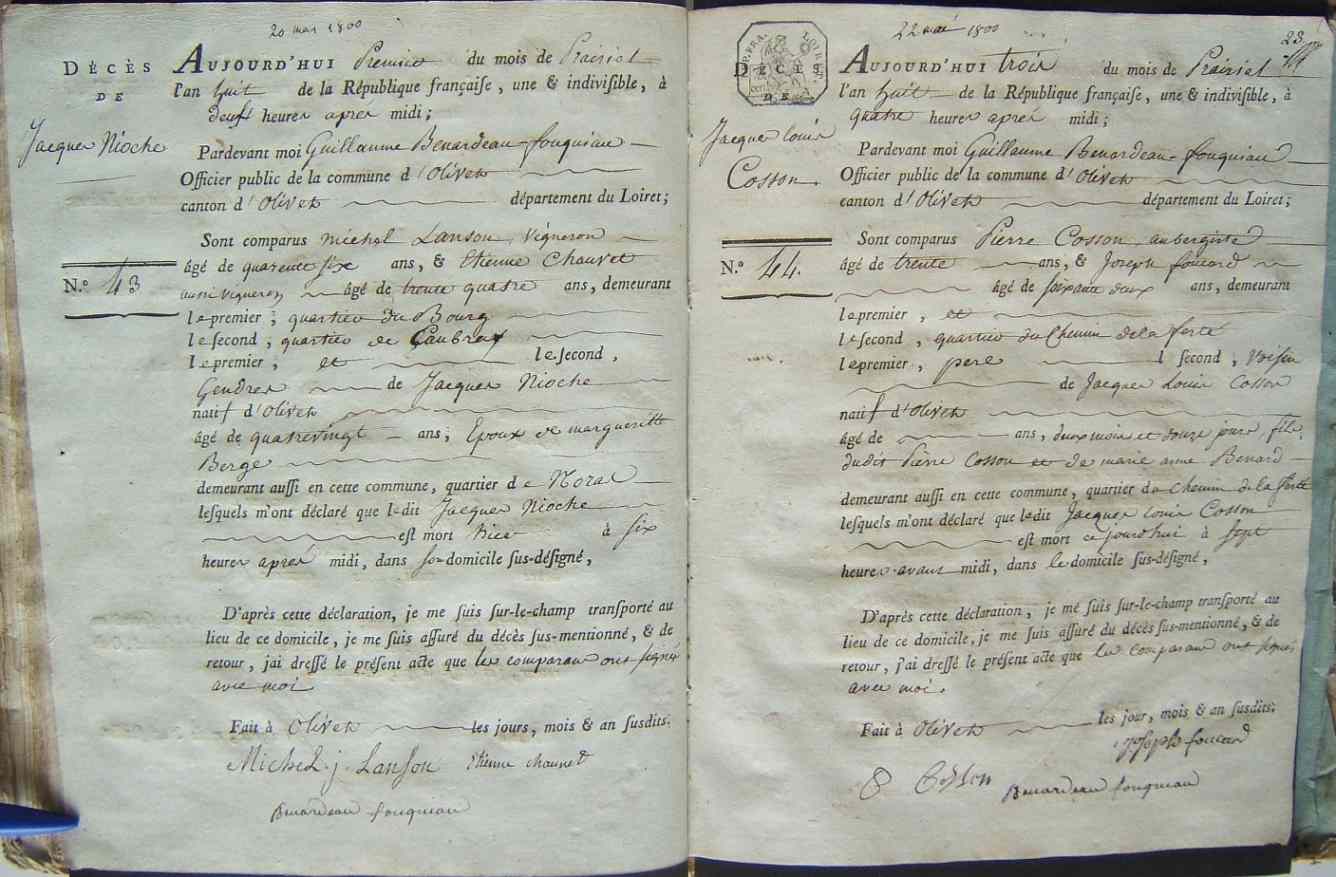 20 mai 1800
DÉCÈS
DE
Jacques Nioche
N.º 43
AUJOURD'HUI Premier du mois de Prairial
l'an huit de la République françaiſe, une & indiviſible, à
deux heures après midi ;
Pardevant moi Guillaume Benardeau-fouquiau
Officier public de la commune d'Olivet
canton d'Olivet département du Loiret ;
Sont comparus michel Lanson, vigneron
âgé de quarente ſix ans, & Etienne Chauvet
aussi vigneron âgé de trente quatre ans, demeurant
le premier, quartier du Bourg
le ſecond, quartier de Caubray
le premier, et le ſecond,
Gendres de Jacques Nioche
natif d'Olivet
âgé de quatrevingt ans, Epoux de margueritte
Berge
demeurant auſſi en cette commune, quartier de
leſquels m'ont déclaré que ledit Jacques Nioche
eſt mort hier à ſix
heures après midi, dans ſon domicile ſus-déſigné,
D'après cette déclaration, je me ſuis ſur-le-champ tranſporté au
lieu de ce domicile, je me ſuis aſſuré du décès ſus-mentionné, & de
retour, j'ai dreſſé le préſent acte que les comparans ont ſigné
avec moi.
Fait à Olivet les jours, mois & an ſusdits.
Michel. j. Lanſon Etienne chauvet
Benardeau fouquiau
22 mai 1800
23
DÉCÈS
DE
Jacques louis
Cosson.
N.º 44.
AUJOURD'HUI trois du mois de Prairial
l'an huit de la République françaiſe, une & indiviſible, à
quatre heures après midi ;
Pardevant moi Guillaume Benardeau-fouquiau
Officier public de la commune d'Olivet
canton d'Olivet département du Loiret ;
Sont comparus Pierre Cosson, aubergiste
âgé de trente ans, & Joseph foucard
âgé de ſoixante deux ans, demeurant
le premier, et
le ſecond, quartier du Chemin de la ferté
le premier, pere l ſecond, voiſin
de Jacques Louis Cosson
natif d'Olivet
âgé de ans, deux mois et douze jours fils
dudit Pierre Cosson et de marie anne Benard
demeurant auſſi en cette commune, quartier du Chemin de la ferté
leſquels m'ont déclaré que ledit Jacques louis Cosson
eſt mort ce jourd'hui à ſept
heures avant midi, dans le domicile ſus-déſigné,
D'après cette déclaration, je me ſuis ſur-le-champ tranſporté au
lieu de ce domicile, je me ſuis aſſuré du décès ſus-mentionné, & de
retour, j'ai dreſſé le préſent acte que les comparans ont ſignés
avec moi.
Fait à Olivet les jour, mois & an ſusdits.
Joseph foucard
Cosson Benardeau fouquiau